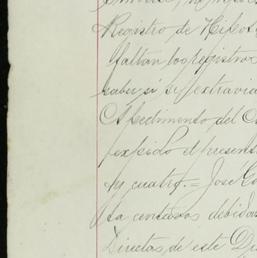 Registro de Hipot
faltan los registros
saber si se extravia
A pedimento del C
expido el presen
y cuatro.= José G
ta centavos debida
Directas, de este Di